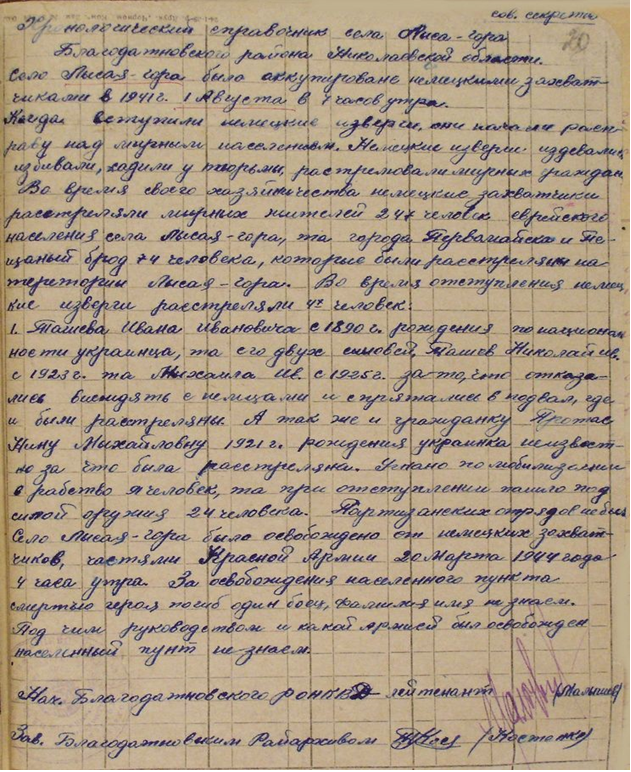 сов. секретно
20
Хронологический справочник села Лысая-гора
Благодатновского района Николаевской области.
Село Лысая-гора было аккупировано немецкими захват-
чиками в 1941 г. 1 Августа в 7 часов утра.
Когда вступили немецкие изверги, они начали распр-
праву над мирным населением. Немецкие изверги издевались
избивали, садили у тюрьмы, растреловали мирных граждан
Во время своего хазяйничества немецкие захватчики
расстреляли мирных жителей 247 человек еврейского
населения села Лысая-гора, та города Первамайска и Пе-
щаный брод 74 человека, которые были расстреляны на
територии Лысая-гора. Во время отступления немец-
кие изверги расстреляли 4х человек:
1. Ташева Ивана Ивановича с 1890 г. рождения по национал
ности украинца, та его двух сыновей, Ташев Николай ив.
с 1923 г. та Михаила Ив. с 1925 г. за то, что отказа-
лись с немцами и спрятались в подвал, где
и были расстреляны. А так же и гражданку Протас
Нину Михайловну 1921 г. рождения украинка неизвест-
но за что была расстреляна. Угнано по мобилизации
в рабство человек, та при отступлении пашло под
силой оружия 24 человека. Партизанских отрядов не был
Село Лысая-гора было освобождено от немецких захват-
чиков, частями Красной Армии 20 Марта 1944 года
4 часа утра. За освобождения населенного пункта
смертию героя погиб один боец, фамилия имя не знаем.
Под чим руководством и какой Армией был освобожден
населенный пункт не знаем.
Нач. Благодатновского РОНКВД лейтенант /Малышев/
Зав. Благодатновским Райархивом /Костенко/